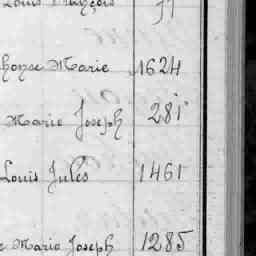 Louis François 77
phonse Marie 1624
Marie Joseph 281
Louis Jules 1461
Marie Joseph 1285